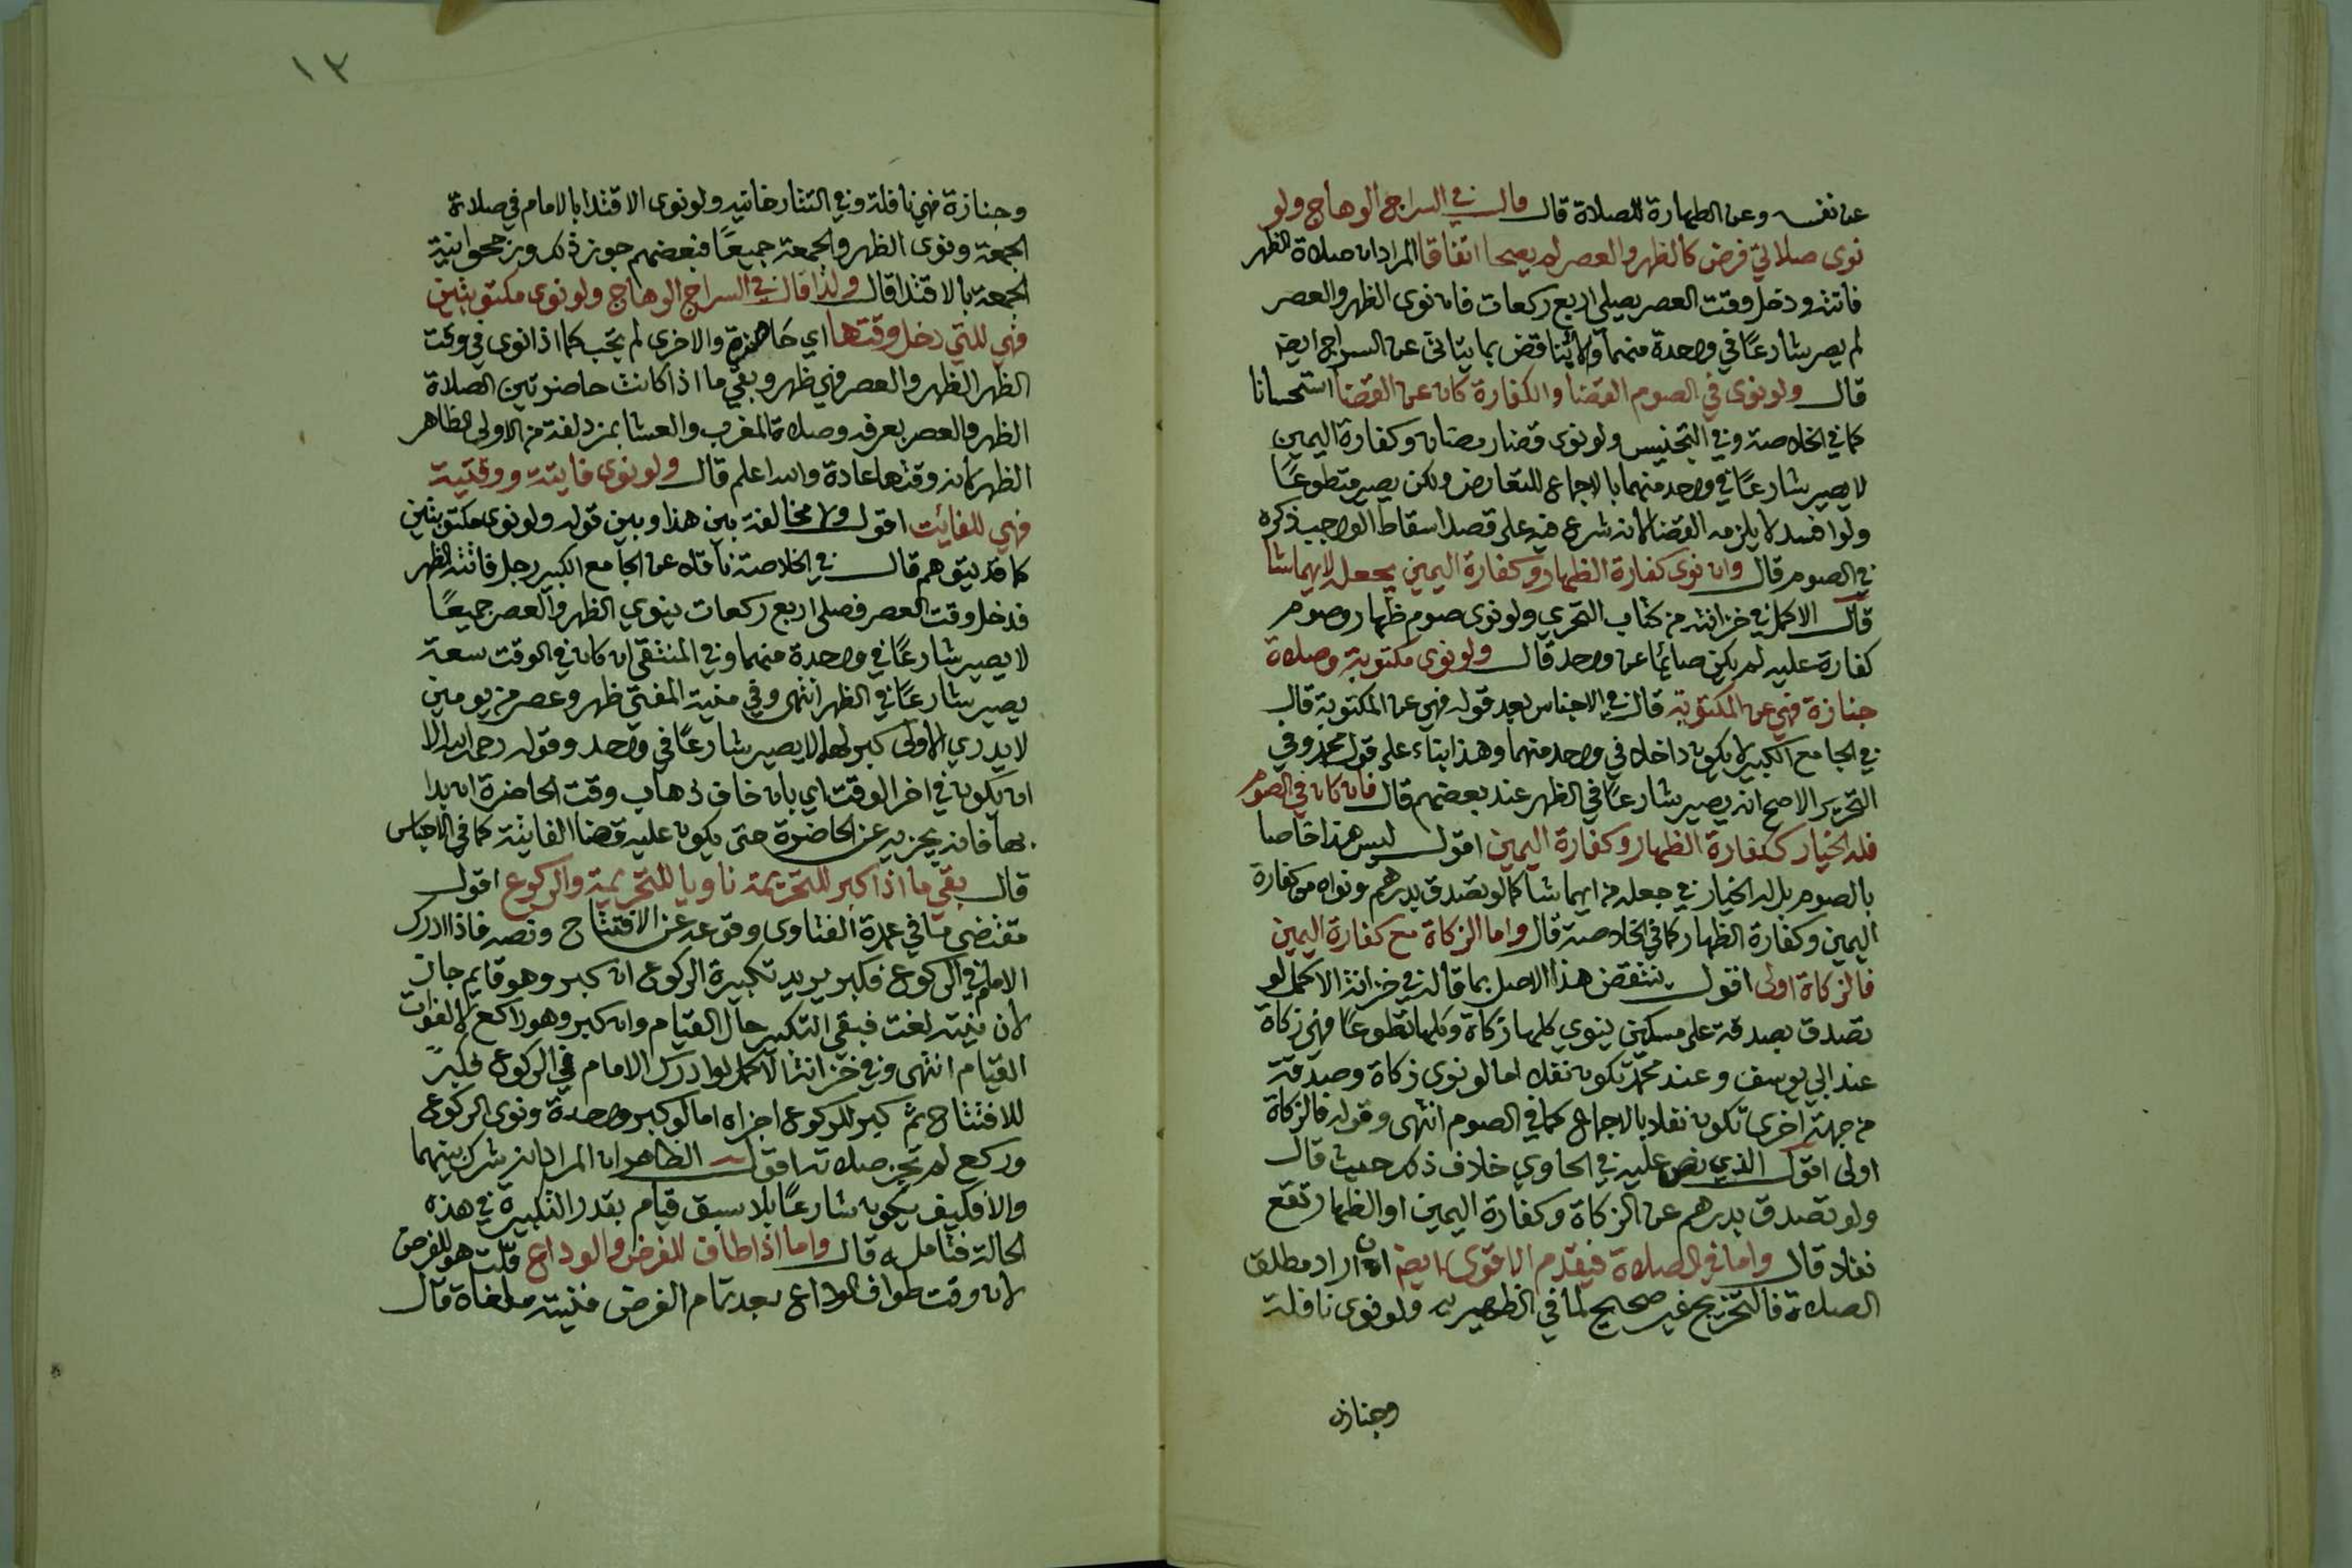 عن نفسه وعن الطهارة للصلاة قال قال في السراج الوهاج ولو
نوى صلاتي فرض كالظهر والعصر لم يصحا اتفاقا المراد ان صلاة الظهر
فاتته ودخل وقت العصر يصلي اربع ركعات فان نوى الظهر والعصر
لم يصر شارعًا في واحدة منهما ولا يناقض بما يتاتى عن السراج ايضا
قال ولو نوى في الصوم القضا والكفارة كان عن القضا استحسانا
كما في الخلاصة وفي التجنيس ولو نوى قضا رمضان وكفارة اليمين
لا يصير شارعًا في واحد منهما بالاجماع للتعارض ولكن يصير متطوعًا
ولو افسد لا يلزمه القضا لانه شرع فيه على قصد اسقاط الواجب ذكره
في الصوم قال وان نوى كفارة الظهار وكفارة اليمين يجعل لايهما شا
قال الاكمل في خزانته من كتاب التحري ولو نوى صوم ظهار وصوم
كفارة عليه لم يكن صائما عن واحد قال ولو نوى مكتوبة وصلاة
جنازة فهي عن المكتوبة قال في الاجناس بعد قوله فهي عن المكتوبة قال
في الجامع الكبير لا يكون داخلا في واحد منهما وهذا بناء على قول محمد وفي
التحرير الاصح انه يصير شارعًا في الظهر عند بعضهم قال فان كان في الصوم
فله الخيار ككفارة الظهار وكفارة اليمين اقول ليس هذا خاصا
بالصوم بل له الخيار في جعله من ايهما شا كما لو تصدق بدرهم ونواه من كفارة
اليمين وكفارة الظهار كما في الخلاصة قال واما الزكاة مع كفارة اليمين
فالزكاة اولى اقول ينتقض هذا الاصل بما قاله في خزانة الاكمل لو
تصدق بصدقة على مسكين ينوي كلها زكاة وكلها تطوعًا فهي زكاة
عند ابي يوسف وعند محمد تكون نفلا اما لو نوى زكاة وصدقة
من جهة اخرى تكون نفلا بالاجماع كما في الصوم انتهى وقوله فالزكاة
اولى اقول الذي نص عليه في الحاوي خلاف ذلك حيث قال
ولو تصدق بدرهم عن الزكاة وكفارة اليمين او الظهار تقع
نفلا قال واما في الصلاة فيقدم الاقوى ايضا ان اراد مطلق
الصلاة فالتخريج غير صحيح لما في الظهيرية ولو نوى نافلة
وجنازة
١٣
وجنازة فهي نافلة وفي التتارخانيه ولو نوى الاقتدا بالامام في صلاة
الجمعة ونوى الظهر والجمعة جميعًا فبعضهم جوز ذلك ورجحوا نية
الجمعة بالاقتدا قال ولذا قال في السراج الوهاج ولو نوى مكتوبتين
فهي للتي دخل وقتها اي حاضرة والاخرى لم تجب كما اذا نوى في وقت
الظهر الظهر والعصر فهي ظهر وبقي ما اذا كانت حاضرتين الصلاة
الظهر والعصر بعرفه وصلاة المغرب والعشا بمزدلفة من الاولى الظاهر
الظهر لانه وقتها عادة والله اعلم قال ولو نوى فايتة ووقتية
فهي للفائت اقول ولا مخالفة بين هذا وبين قوله ولو نوى مكتوبتين
كما قد يتوهم قال في الخلاصة ناقلا عن الجامع الكبير رجل فاتته الظهر
فدخل وقت العصر فصلى اربع ركعات ينوي الظهر والعصر جميعًا
لا يصير شارعًا في واحدة منهما وفي المنتقى ان كان في الوقت سعة
يصير شارعًا في الظهر انتهى وفي منية المفتي ظهر وعصر من يومين
لا يدري الاولى كبر لهما لا يصير شارعًا في واحد وقوله رحمه الله الا
ان يكون في اخر الوقت اي بان خاف ذهاب وقت الحاضرة ان بدا
بها فانه يجزيه عن الحاضرة حتى يكون عليه قضا الفائتة كما في الاجناس
قال بقي ما اذا كبر للتحريمة ناويا للتحريمة والركوع اقول
مقتضى ما في عمدة الفتاوى وقوعه عن الافتتاح ونصه فاذا ادرك
الامام في الركوع فكبر يريد تكبيرة الركوع ان كبر وهو قايم جاز
لان نيته لغت فبقي التكبير حال القيام وان كبر وهو راكع لا لفوات
القيام انتهى وفي خزانة الاكمل لو ادرك الامام في الركوع فكبر
للافتتاح ثم كبر للركوع اجزاه اما لو كبر واحدة ونوى الركوع
وركع لم تجز صلاته اقول الظاهر ان المراد انه شرك بينهما
والا فكيف يكون شارعًا بلا سبق قيام بقدر التكبيرة في هذه
الحالة فتامله قال واما اذا طاف للفرض والوداع قلت هو للفرض
لان وقت طواف الوداع بعد تمام الفرض فنيته ملغاة قال